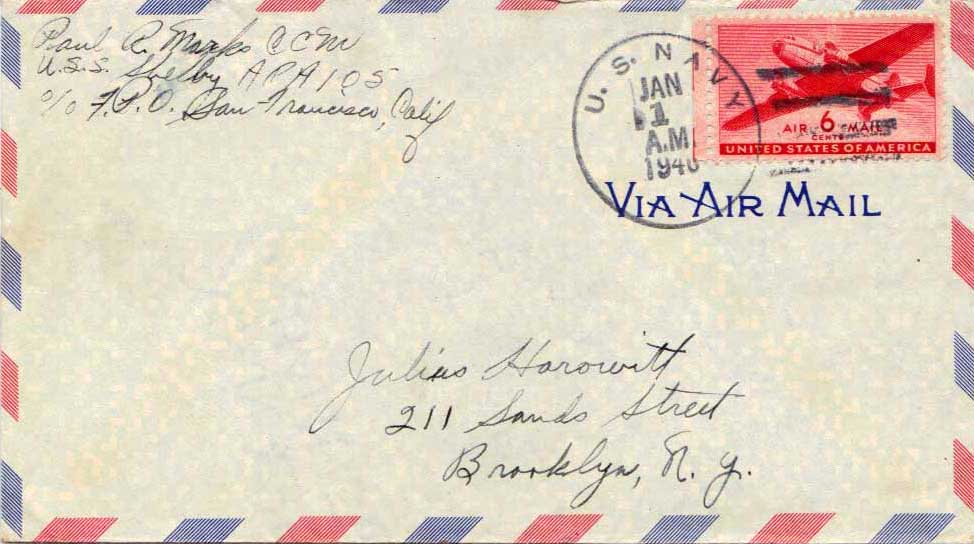 Paul R. Marks CCM
U.S.S. Shelby APA 105
c/o F.P.O. San Francisco, Calif
U.S. NAVY
JAN
1
A.M
1946
AIR 6 MAIL
CENTS
UNITED STATES OF AMERICA
VIA AIR MAIL
Julius Horowitt
211 Sands Street
Brooklyn, N.Y.